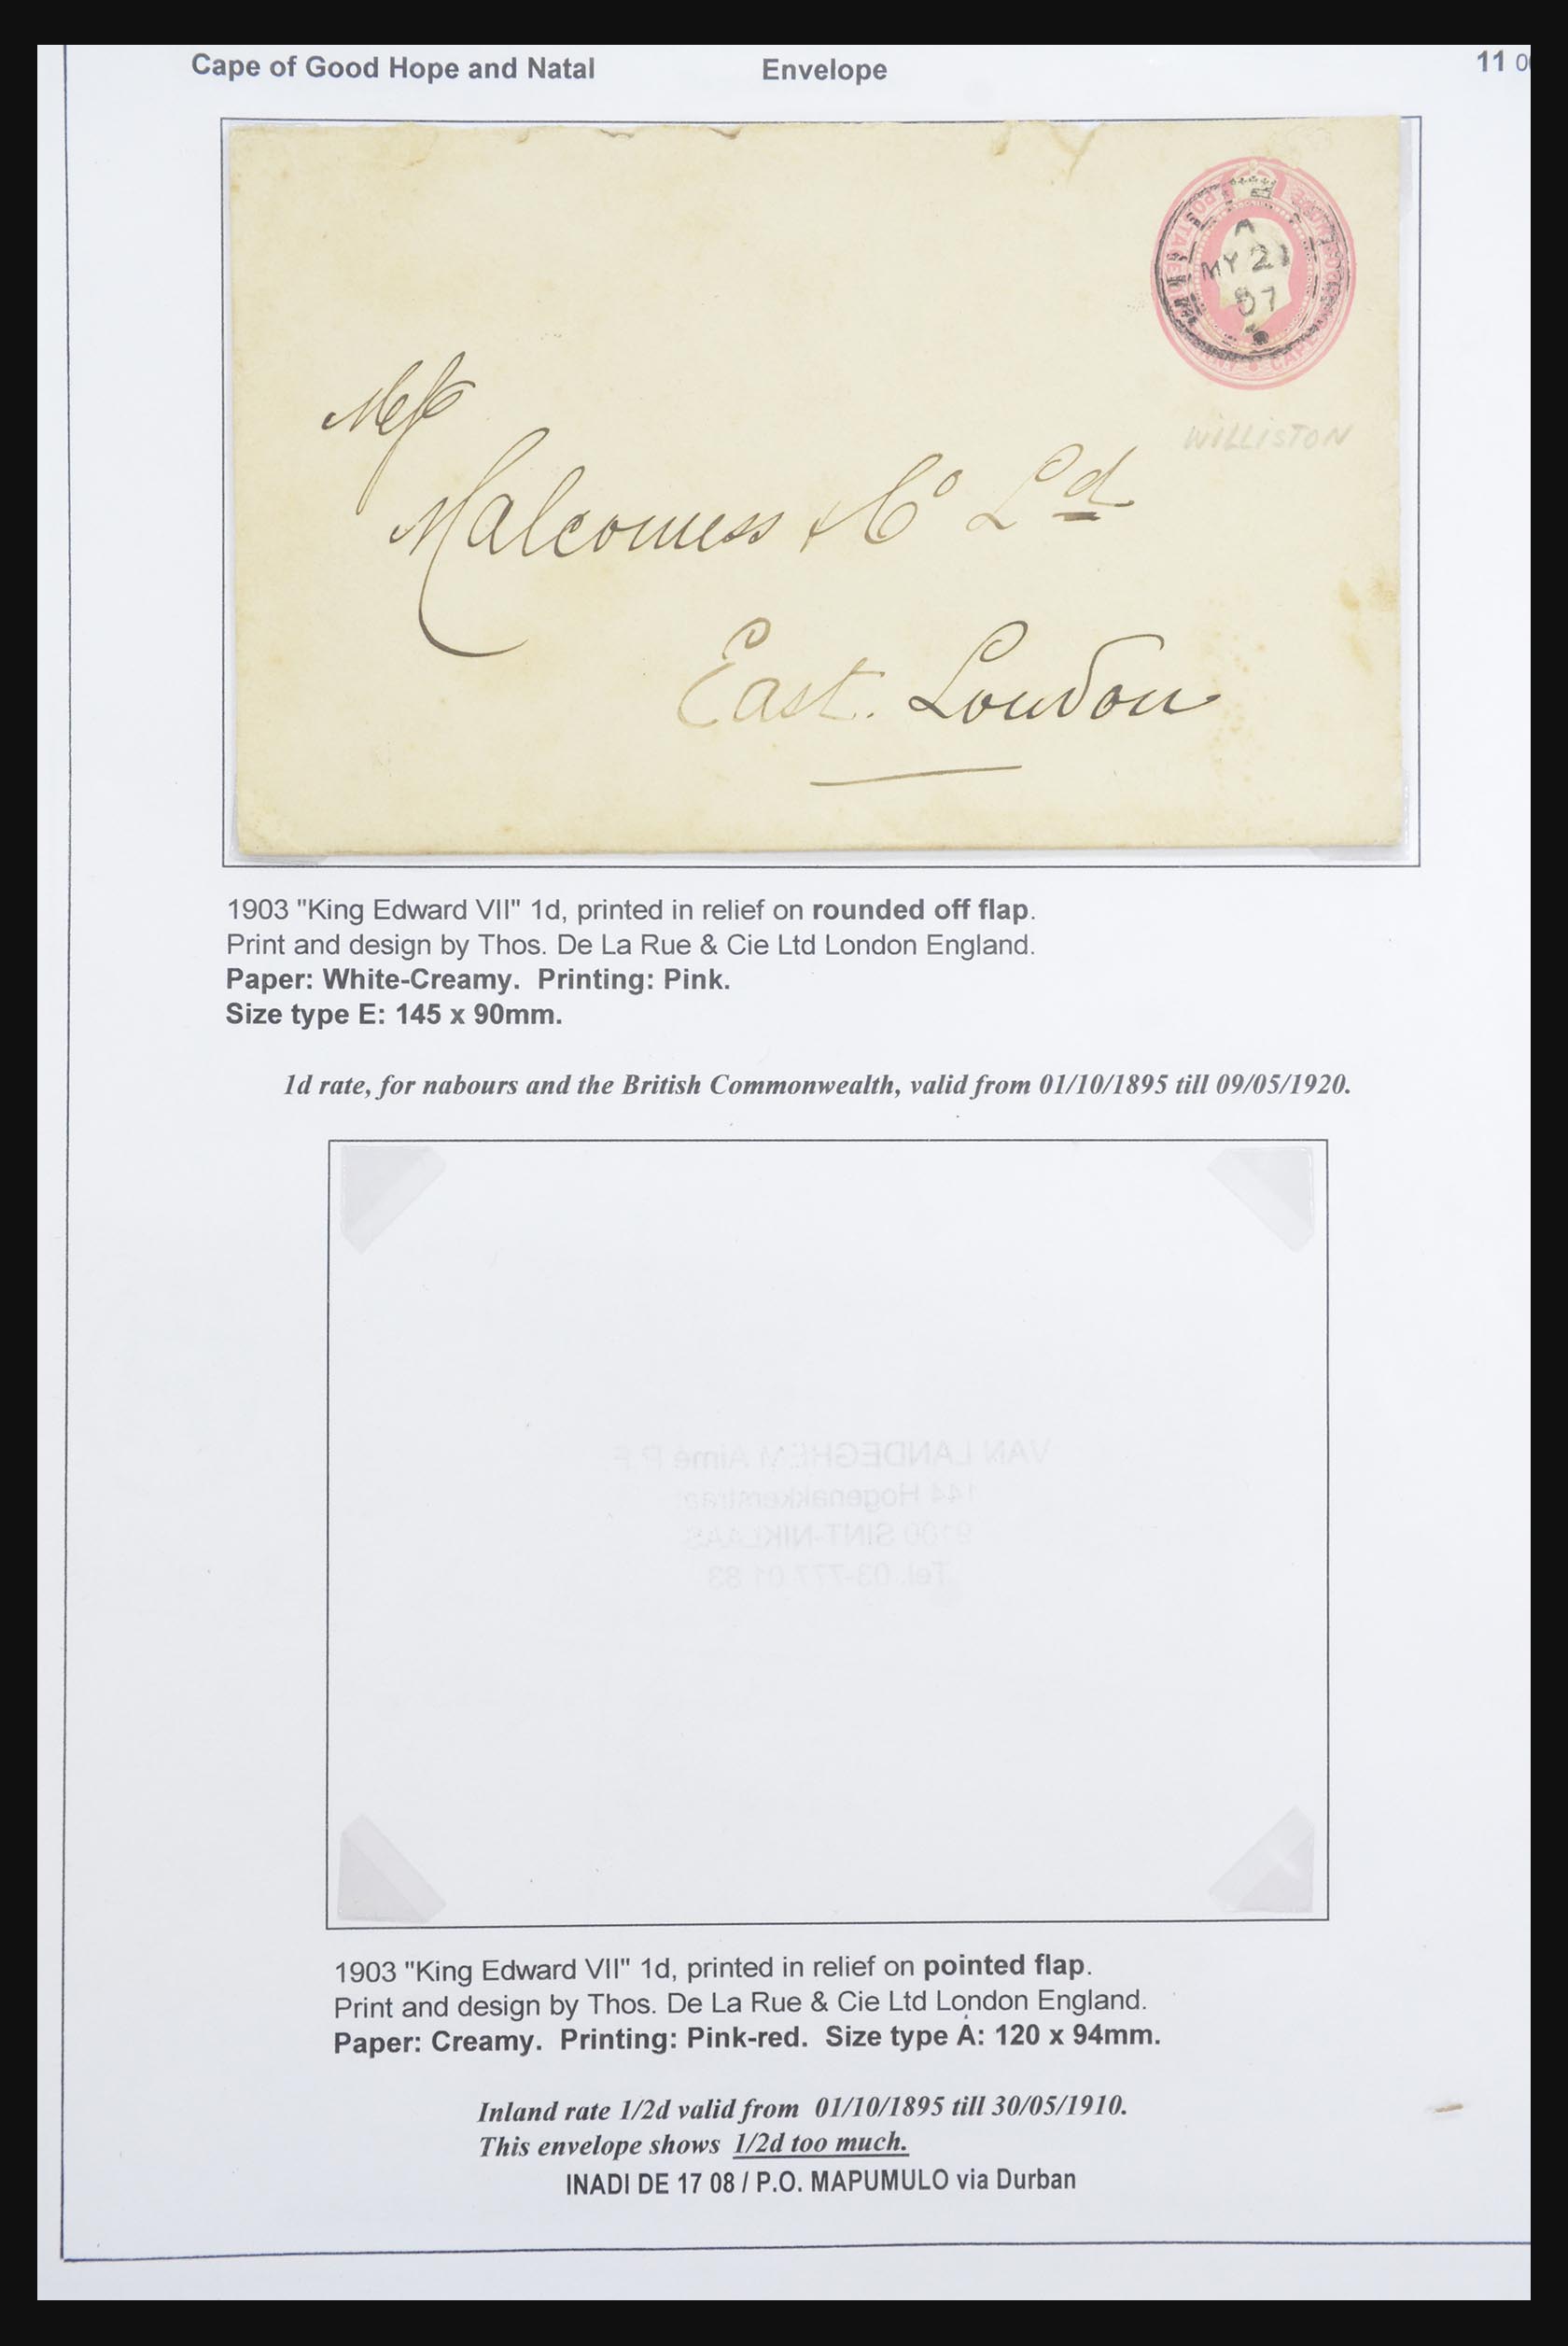 Cape of Good Hope and Natal Envelope 11
A
MY 21
07
WILLISTON
Malcomess & Co Ld
East. London
1903 "King Edward VII" 1d, printed in relief on rounded off flap.
Print and design by Thos. De La Rue & Cie Ltd London England.
Paper: White-Creamy. Printing: Pink.
Size type E: 145 x 90mm.
1d rate, for nabours and the British Commonwealth, valid from 01/10/1895 till 09/05/1920.
VAN LANDEGHEM Aimé
144 Hogenakkerstraat
9100 SINT-NIKLAAS
Tel. 03-777 01 83
1903 "King Edward VII" 1d, printed in relief on pointed flap.
Print and design by Thos. De La Rue & Cie Ltd London England.
Paper: Creamy. Printing: Pink-red. Size type A: 120 x 94mm.
Inland rate 1/2d valid from 01/10/1895 till 30/05/1910.
This envelope shows 1/2d too much.
INADI DE 17 08 / P.O. MAPUMULO via Durban